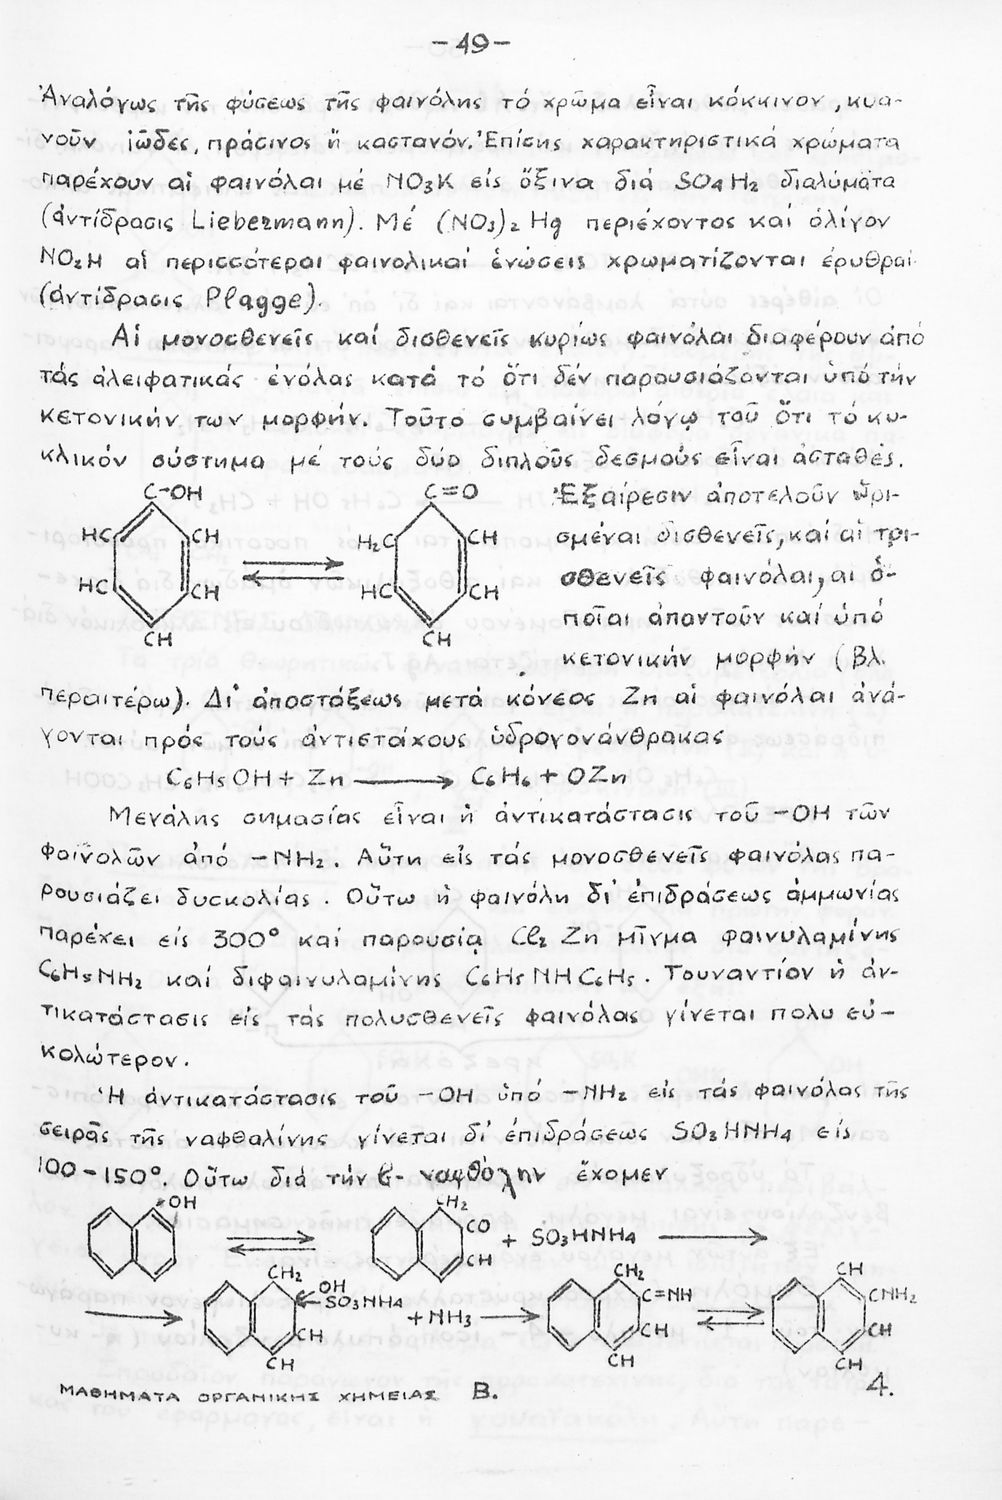 -49-
Ἀναλόγως τῆς φύσεως τῆς φαινόλης τό χρῶμα εἶναι κόκκινον, κυα-
νοῦν ἰῶδες, πράσινος ἤ καστανόν. Ἐπίσης χαρακτηριστικά χρώματα
παρέχουν αἱ φαινόλαι μέ NO₃K εἰς ὄξινα διά SO₄H₂ διαλύματα
(ἀντίδρασις Liebermann). Μέ (NO₃)₂ Hg περιέχοντος καί ὀλίγον
NO₂H αἱ περισσότεραι φαινολικαί ἑνώσεις χρωματίζονται ἐρυθραί
(ἀντίδρασις Plagge).
Αἱ μονοσθενεῖς καί δισθενεῖς κυρίως φαινόλαι διαφέρουν ἀπό
τάς ἀλειφατικάς ἐνόλας κατά τό ὅτι δέν παρουσιάζονται ὑπό τήν
κετονικήν των μορφήν. Τοῦτο συμβαίνει λογῳ τοῦ ὅτι τό κυ-
κλικόν σύστημα μέ τούς δύο διπλοῦς δεσμούς εἶναι ἀσταθές.
C-OH C=O Ἐξαίρεσιν ἀποτελοῦν ὡρι-
HC CH H₂C CH σμέναι δισθενεῖς, καί αἱ τρι-
HC CH HC CH σθενεῖς φαινόλαι, αἱ ὁ-
ποῖαι ἀπαντοῦν καί ὑπό
CH CH
κετονικήν μορφήν (βλ.
περαιτέρω). Δι' ἀποστάξεως μετά κόνεος Zn αἱ φαινόλαι ἀνά-
γονται πρός τούς ἀντιστοίχους ὑδρογονάνθρακας
C₆H₅OH + Zn ⟶ C₆H₆ + OZn
Μεγάλης σημασίας εἶναι ἡ ἀντικατάστασις τοῦ -OH τῶν
φαινολῶν ἀπό -NH₂. Αὕτη εἰς τάς μονοσθενεῖς φαινόλας πα-
ρουσιάζει δυσκολίας. Οὕτω ἡ φαινόλη δι' ἐπιδράσεως ἀμμωνίας
παρέχει εἰς 300° καί παρουσίᾳ Cl₂ Zn μῖγμα φαινυλαμίνης
C₆H₅NH₂ καί διφαινυλαμίνης C₆H₅NHC₆H₅. Τουναντίον ἡ ἀν-
τικατάστασις εἰς τάς πολυσθενεῖς φαινόλας γίνεται πολυ εὐ-
κολώτερον.
Ἡ ἀντικατάστασις τοῦ -OH ὑπό -NH₂ εἰς τάς φαινόλας τῆς
σειρᾶς τῆς ναφθαλίνης γίνεται δι' ἐπιδράσεως SO₃HNH₄ εἰς
100-150°. Οὕτω διά τήν β- ναφθόλην ἔχομεν
OH CH₂
CO + SO₃HNH₄ ⟶
CH
CH₂ OH CH₂ CH
SO₃NH₄ C=NH CNH₂
+NH₃ ⟶
CH CH CH
CH CH CH
ΜΑΘΗΜΑΤΑ ΟΡΓΑΝΙΚΗΣ ΧΗΜΕΙΑΣ Β. 4.